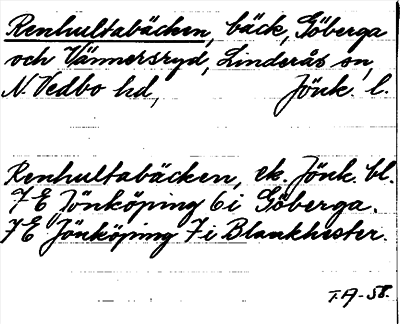 Renhultabäcken, bäck, Göberga
och Vännersryd, Linderås sn,
N. Vedbo hd, Jönk. l.
Renhultabäcken, ek. Jönk. bl.
7E Jönköping 6i Göberga.
7E Jönköping 7i Blankhester.
T.A-58.